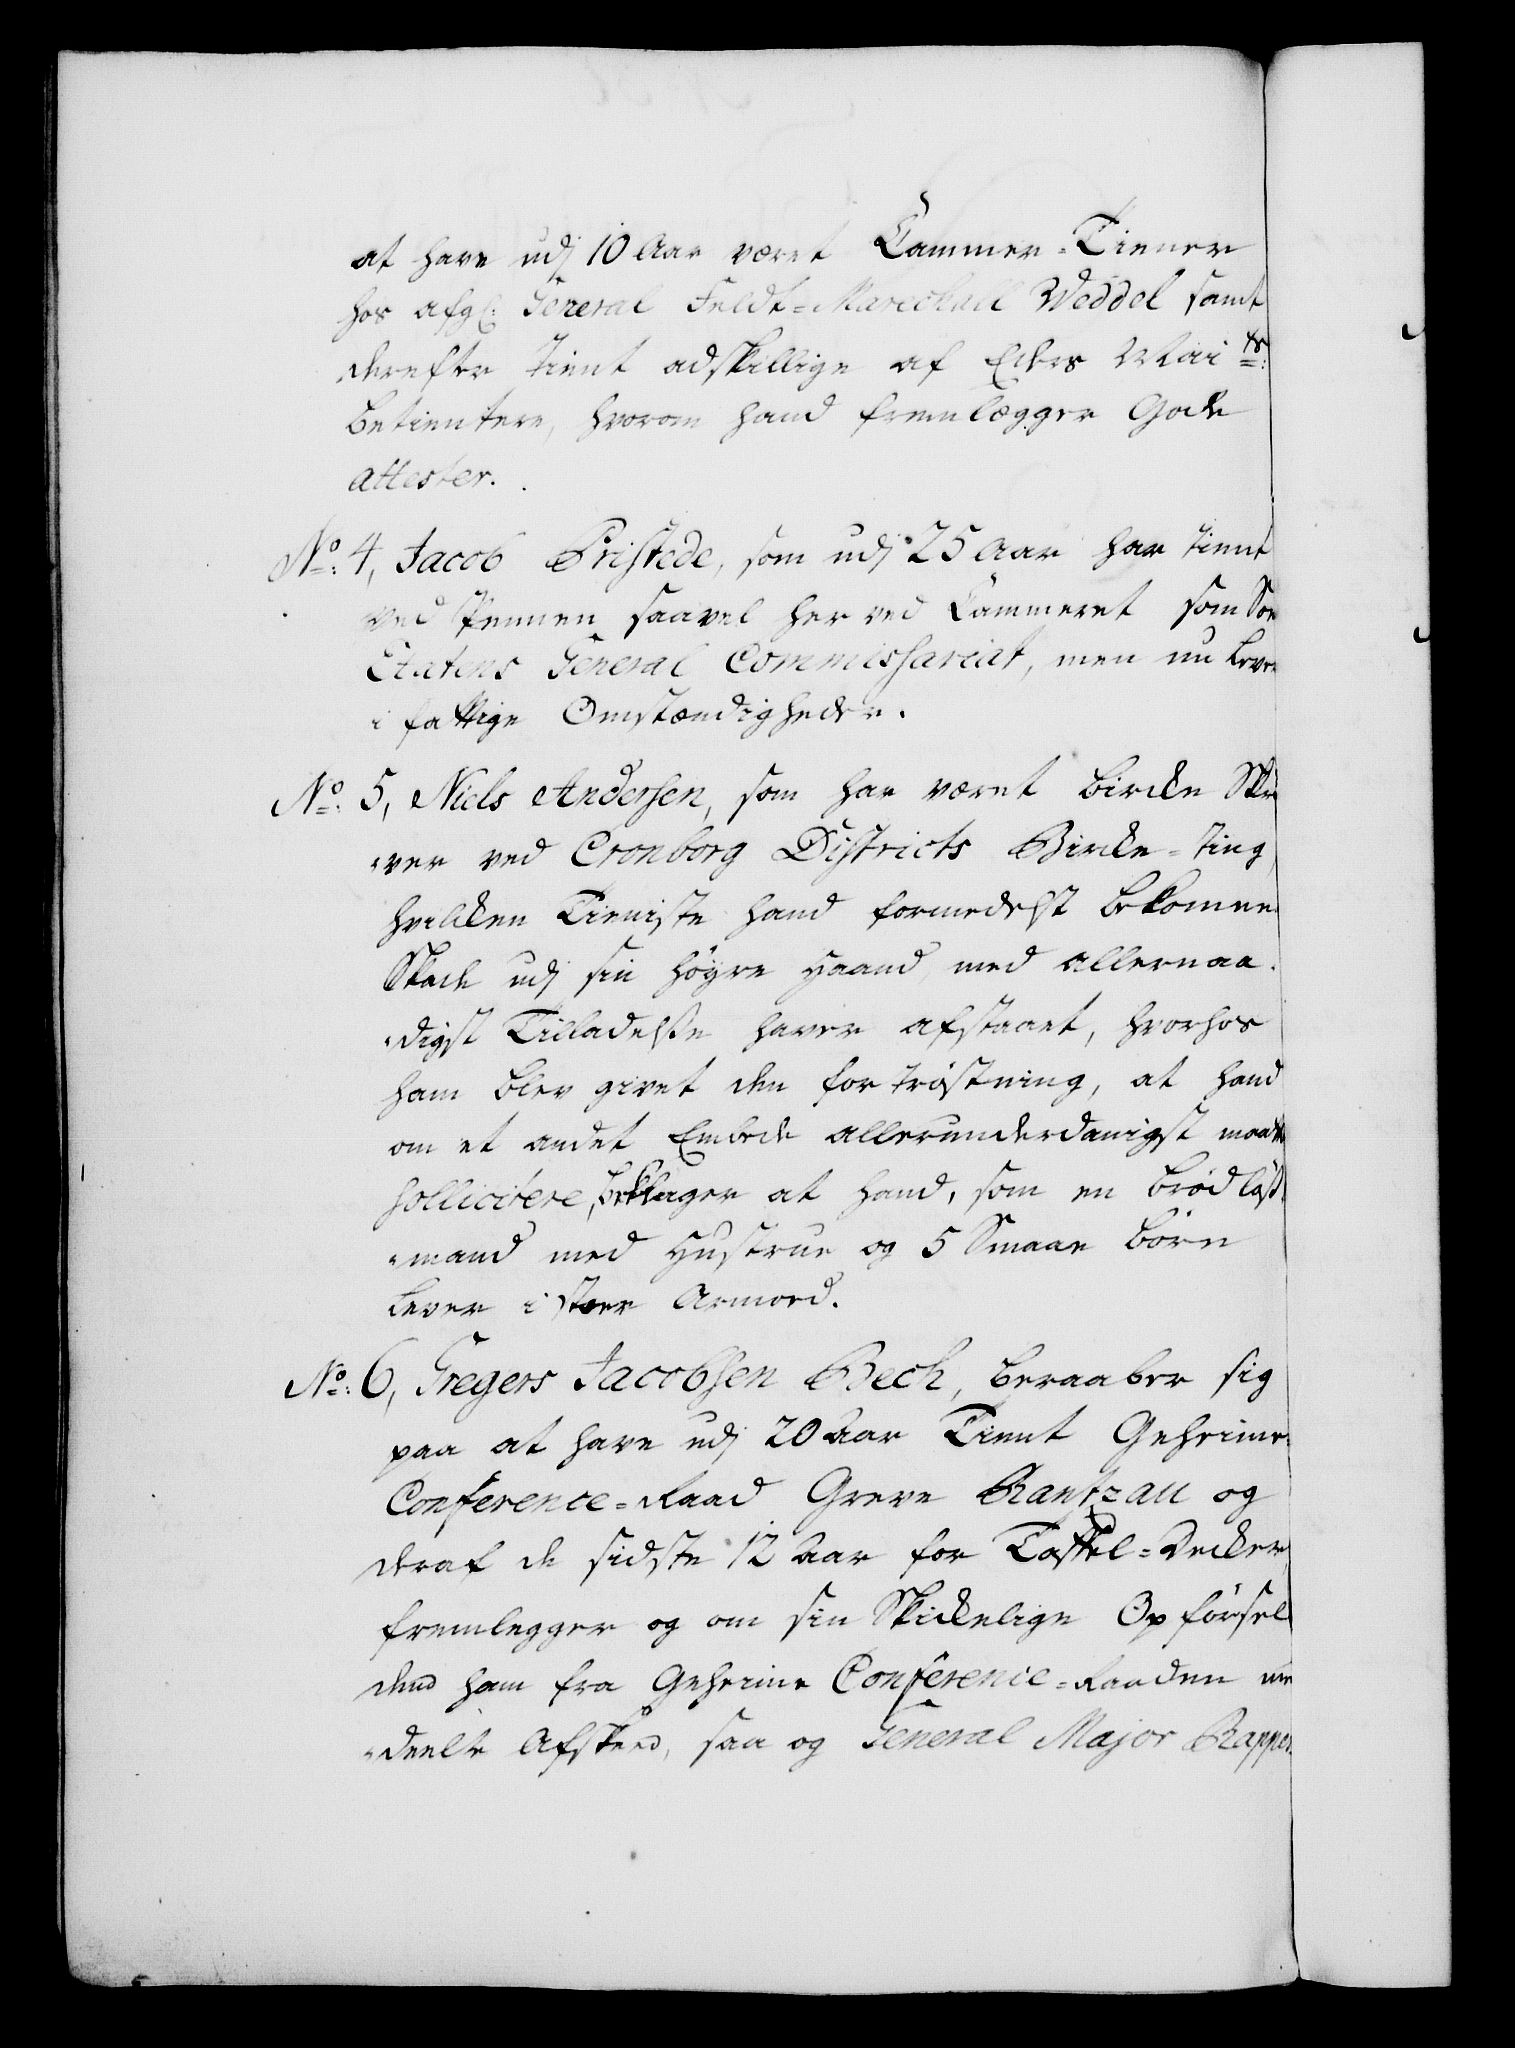 at have udj 10 Aar været Cammer-Tiener
hos afg: General Feldt-Mareschall Weddel samt
derefter tient adskillige af Eders Mai ts:
betientere, hvorom hand fremlægger Gode
attester.
No: 4, Jacob Bristede, som udj 25 Aar har tient
ved Pennen saavel her ved Cammeret som Soe
Etatens General Commissariat, men nu lever
i fattige Omstændigheder.
No: 5, Niels Andersen, som har været Bircke Skri
ver ved Cronborg Districts Bircke-Ting,
hvilcken Tieniste hand formedelst bekomne
Skade udj sin høyre Haand, med allernaa
digst Tilladelse haver afstaaet, hvorhos
ham blev givet den fortrøstning, at hand
om et andet Embede allerunderdanigst maatte
sollicitere, beklager at hand, som en brødløs
mand med Hustrue og 5 Smaae børn
lever i stoer Armoed.
No: 6, Gregers Jacobsen Bech, beraaber sig
paa at have udj 20 Aar Tient Geheime
Conference-Raad Greve Rantzau og
deraf de sidste 12 Aar for Taffel-Decker,
fremlegger og om sin Skickelige Opførsel
dend ham fra Geheime Conference-Raaden med
deelte Afskeed, saa og General Major Rappe